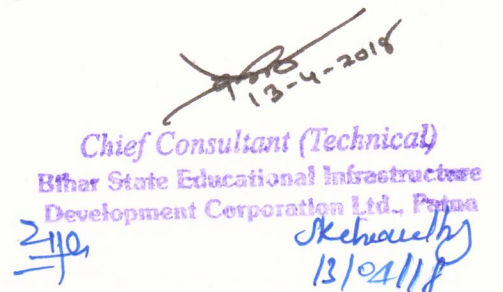 13-4-2018
Chief Consultant (Technical)
Bihar State Educational Infrastructure
Development Corporation Ltd., Patna
13/04/18